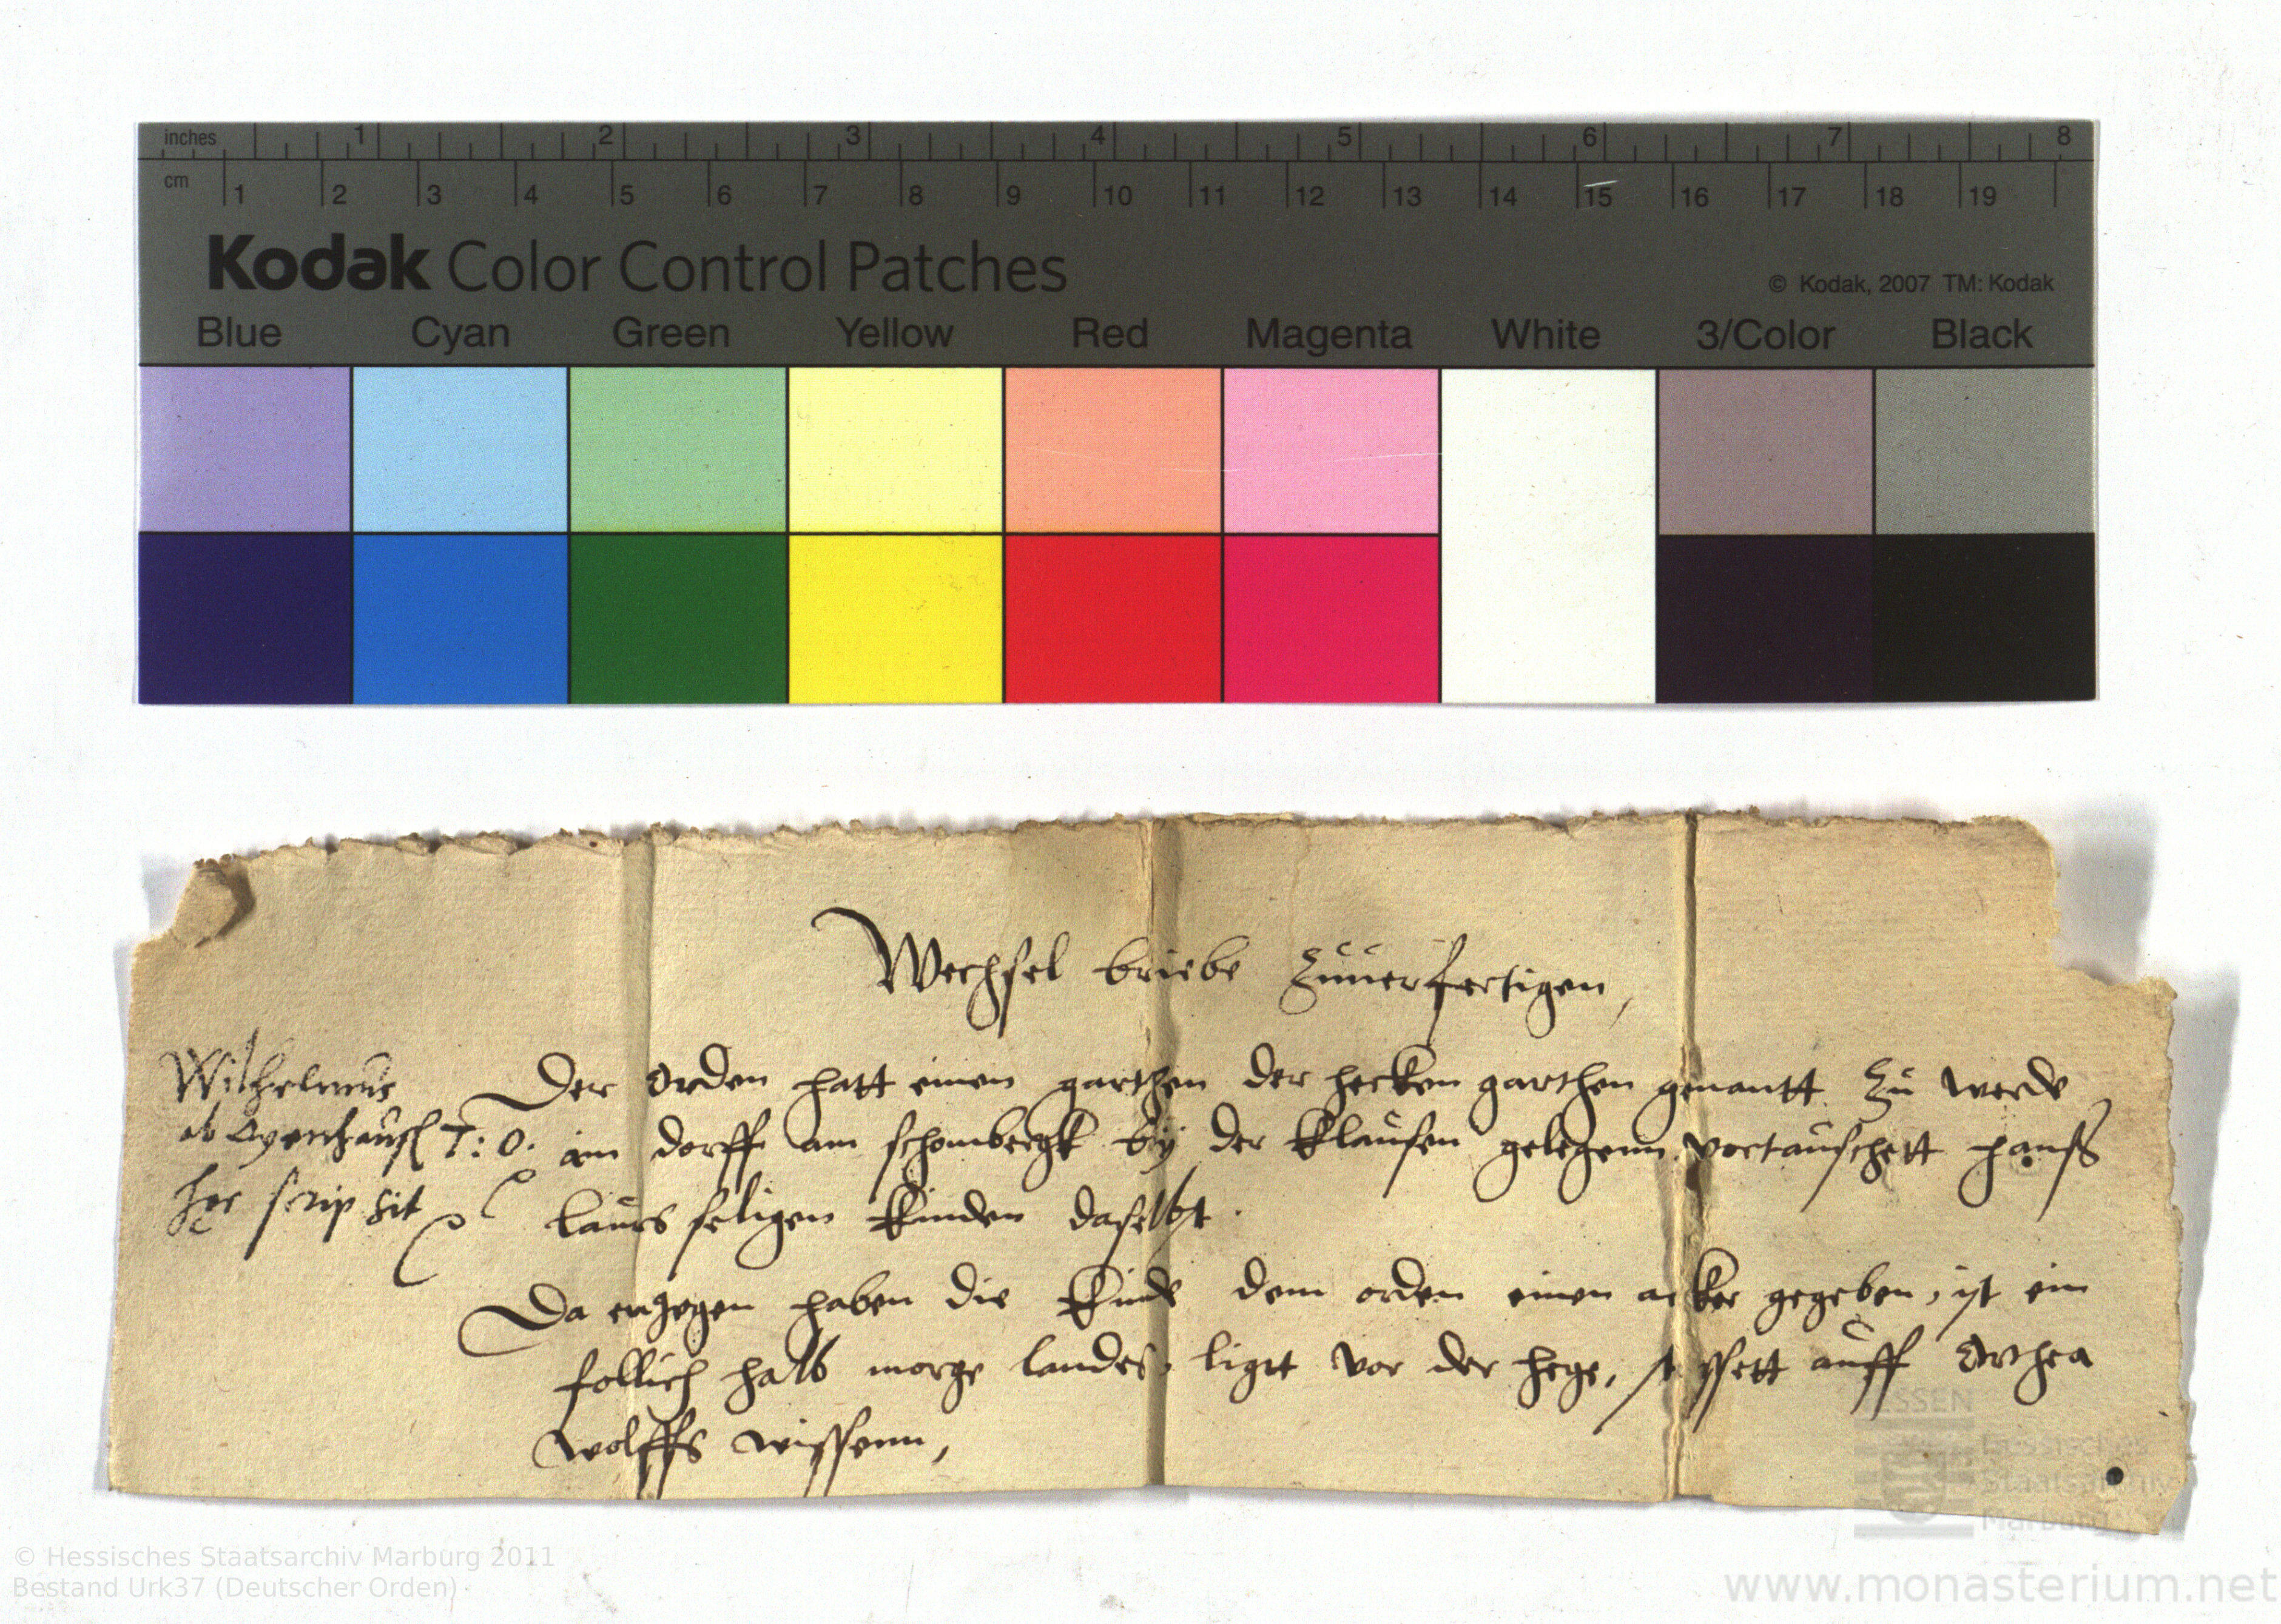 inches 1 2 3 4 5 6 7 8
cm 1 2 3 4 5 6 7 8 9 10 11 12 13 14 15 16 17 18 19
Kodak Color Control Patches
© Kodak, 2007 TM: Kodak
Blue Cyan Green Yellow Red Magenta White 3/Color Black
Wechsel briebe zuuerfertigen,
Wilhelmus
ab T: O.
hec scripsit
Der Orden hatt einen garthen der hecken garthen genantt zu werde
im dorff am schombergk by der Klausen gelegenn vortauschett hanss
laurs seligen Kinden daselbt.
Da engegen haben die Kinde dem orden einen acker gegeben, ist ein
follich halb morge landes, ligtt vor der hege, auff
wolffs wissenn,
HESSEN
Hessisches
Staatsarchiv
Marburg
© Hessisches Staatsarchiv Marburg 2011
Bestand Urk37 (Deutscher Orden)
www.monasterium.net